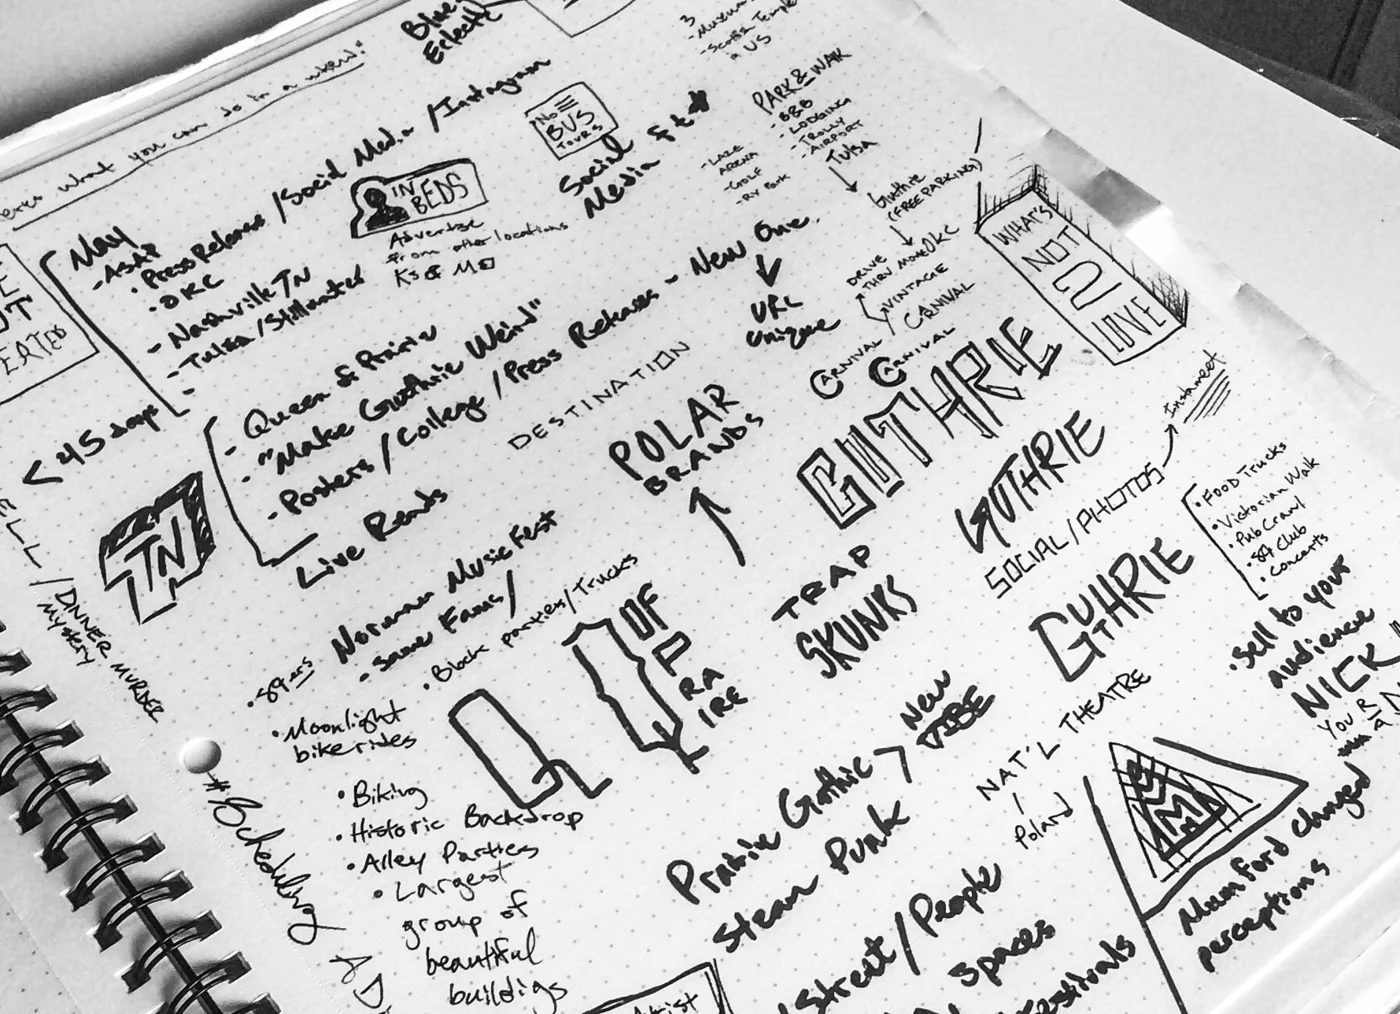 what you can do in a week!"
Blue
Eclectic
3
- Museums
- Scottish Temple
in US
May
- ASAP
• Press Release / Social Media / Instagram
• OKC
- Nashville TN
- Tulsa / Stillwater
< 45 days
IN
BEDS
Advertise
from other locations
KS & MO
NO
BUS
TOURS
Social
Media
PARK & WALK
- B&B
- LODGING
- TROLLY
- AIRPORT
- LAZE
ARENA
- GOLF
- RV Park
TULSA
Guthrie
(FREE PARKING)
DRIVE
THRU MOVE OKC
VINTAGE
CARNIVAL
CARNIVAL
CARNIVAL
WHAT'S
NOT
2
LOVE
- Queen of Prairie
- "Make Guthrie Weird"
- Posters / College / Press Release - New One.
Live Reads
URL
Unique
DESTINATION
POLAR
BRANDS
GUTHRIE
GUTHRIE
SOCIAL / PHOTOS
Instameet
GUTHRIE
• FOOD Trucks
• Victorian Walk
• Pub Crawl
• 89 Club
• Concerts
TN
/ DINNER MURDER
MYSTERY
Norman Music Fest
- Same Fans /
• 89ers
• Block parties / Trucks
• Moonlight
bike rides
• Biking
• Historic Backdrop
• Alley Parties
• Largest
group of
beautiful
buildings
#Scheduling
Q
Q OF
P
RA
IRE
TRAP
SKUNKS
NEW
VIBE
Prairie Gothic >
Steam Punk
NAT'L THEATRE
/
Poland
• Sell to your
audience
NICK
YOU R
Mumford changed
perceptions
Street / People
Spaces
Festivals